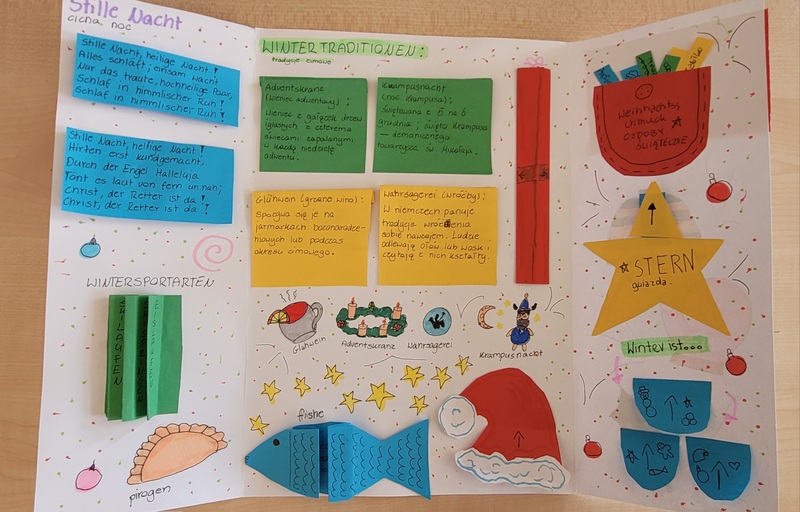 Stille Nacht
cicha noc
Stille Nacht, heilige Nacht!
Alles schläft, einsam wacht
Nur das traute, hochheilige Paar,
Schlaf in himmlischer Ruh!
Schlaf in himmlischer Ruh!
Stille Nacht, heilige Nacht!
Hirten erst kundgemacht,
Durch der Engel Halleluja
Tönt es laut von fern un nah;
Christ, der Retter ist da!
Christ, der Retter ist da!
WINTERSPORTARTEN
SKILAUFEN
pirogen
WINTERTRADITIONEN:
tradycje zimowe
Adventskranz
(wieniec adwentowy):
Wieniec z gałązek drzew
iglastych z czterema
świecami zapalanymi
w każdą niedzielę
adwentu.
Krampusnacht
(noc krampusa):
Świętowana z 5 na 6
grudnia; święto Krampusa
— demonicznego
towarzysza św. Mikołaja.
Glühwein (grzane wino):
Spożywa się je na
jarmarkach bożonarodze-
niowych lub podczas
okresu zimowego.
Wahrsagerei (wróżby):
W niemczech panuje
tradycja wróżenia
sobie nawzajem. Ludzie
odlewają ołów lub wosk i
czytają z nich kształty.
Glühwein
Adventskranz
Wahrsagerei
Krampusnacht
fishe
Weihnachtss
chmuck
OZDOBY
ŚWIĄTECZNE
STERN
gwiazda.
Winter ist...